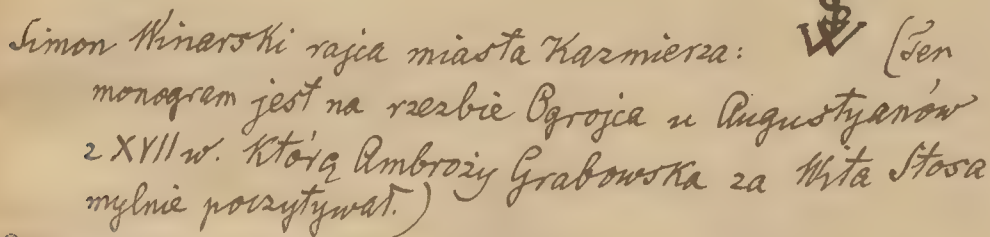 Simon Winarski rajca miasta Kazmierza: SW (Ten
monogram jest na rzezbie Ogrojca u Augustyanów
z XVII w. którą Ambroży Grabowska za Wita Stosa
mylnie poczytywał.)